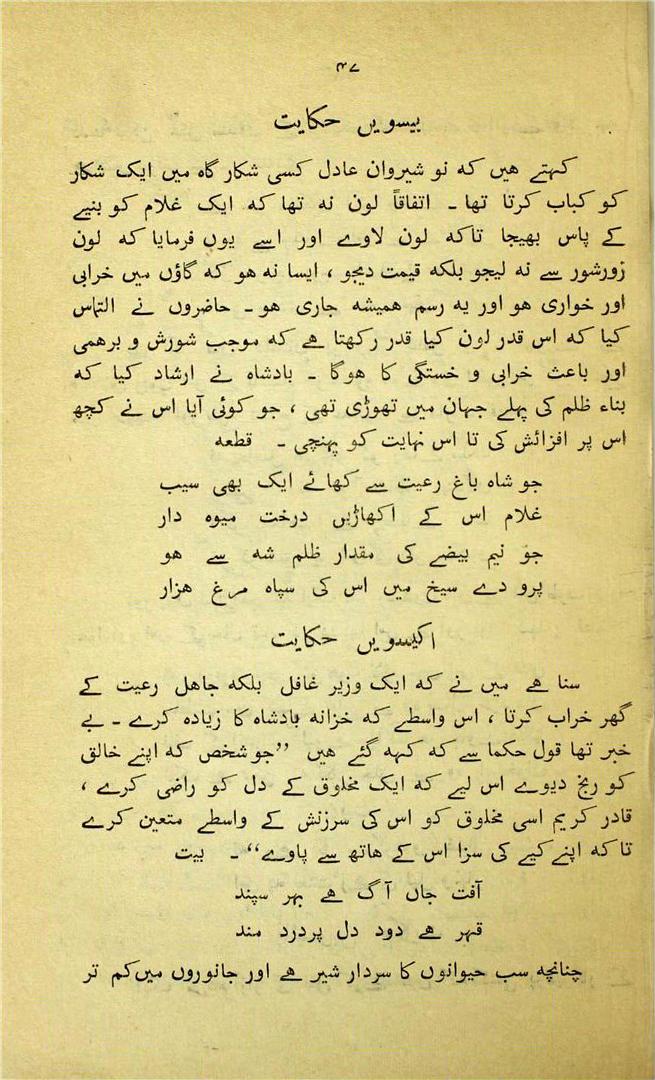 ۴۷
بیسویں حکایت
کہتے ھیں کہ نو شیروان عادل کسی شکار گاہ میں ایک شکار
کو کباب کرتا تھا ۔ اتفاقاً لون نہ تھا کہ ایک غلام کو بنیے
کے پاس بھیجا تاکہ لون لاوے اور اسے یوں فرمایا کہ لون
زورشور سے نہ لیجو بلکہ قیمت دیجو ، ایسا نہ ھو کہ گاؤں میں خرابی
اور خواری ھو اور یہ رسم ھمیشہ جاری ھو ۔ حاضروں نے التماس
کیا کہ اس قدر لون کیا قدر رکھتا ھے کہ موجب شورش و برھمی
اور باعث خرابی و خستگی کا ھوگا ۔ بادشاہ نے ارشاد کیا کہ
بناء ظلم کی پہلے جہان میں تھوڑی تھی ، جو کوئی آیا اس نے کچھ
اس پر افزائش کی تا اس نہایت کو پہنچی ۔ قطعہ
جو شاہ باغ رعیت سے کھائے ایک بھی سیب
غلام اس کے اکھاڑیں درخت میوہ دار
جو نیم بیضے کی مقدار ظلم شہ سے ھو
پرو دے سیخ میں اس کی سپاہ مرغ ھزار
اکیسویں حکایت
سنا ھے میں نے کہ ایک وزیر غافل بلکہ جاھل رعیت کے
گھر خراب کرتا ، اس واسطے کہ خزانہ بادشاہ کا زیادہ کرے ۔ بے
خبر تھا قول حکما سے کہ کہہ گئے ھیں ”جو شخص کہ اپنے خالق
کو رنج دیوے اس لیے کہ ایک مخلوق کے دل کو راضی کرے ،
قادر کریم اسی مخلوق کو اس کی سرزنش کے واسطے متعین کرے
تا کہ اپنے کیے کی سزا اس کے ھاتھ سے پاوے“ ۔ بیت
آفت جاں آگ ھے بہر سپند
قہر ھے دود دل پردرد مند
چنانچہ سب حیوانوں کا سردار شیر ھے اور جانوروں میں کم تر